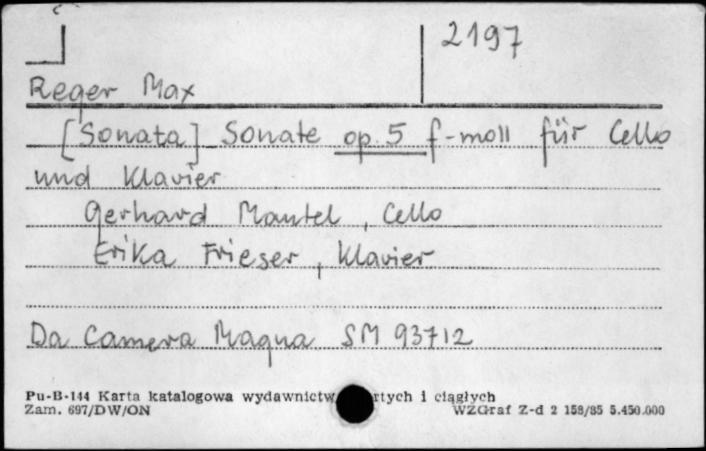 2197
Reger Max
[Sonata] Sonate op. 5 f-moll für Cello
und Klavier
Gerhard Mantel, Cello
Erika Frieser, Klavier
Da Camera Magna SM 93712
Pu-B-144 Karta katalogowa wydawnictw rtych i ciągłych
Zam. 697/DW/ON WZGraf Z-d 2 158/85 5.450.000